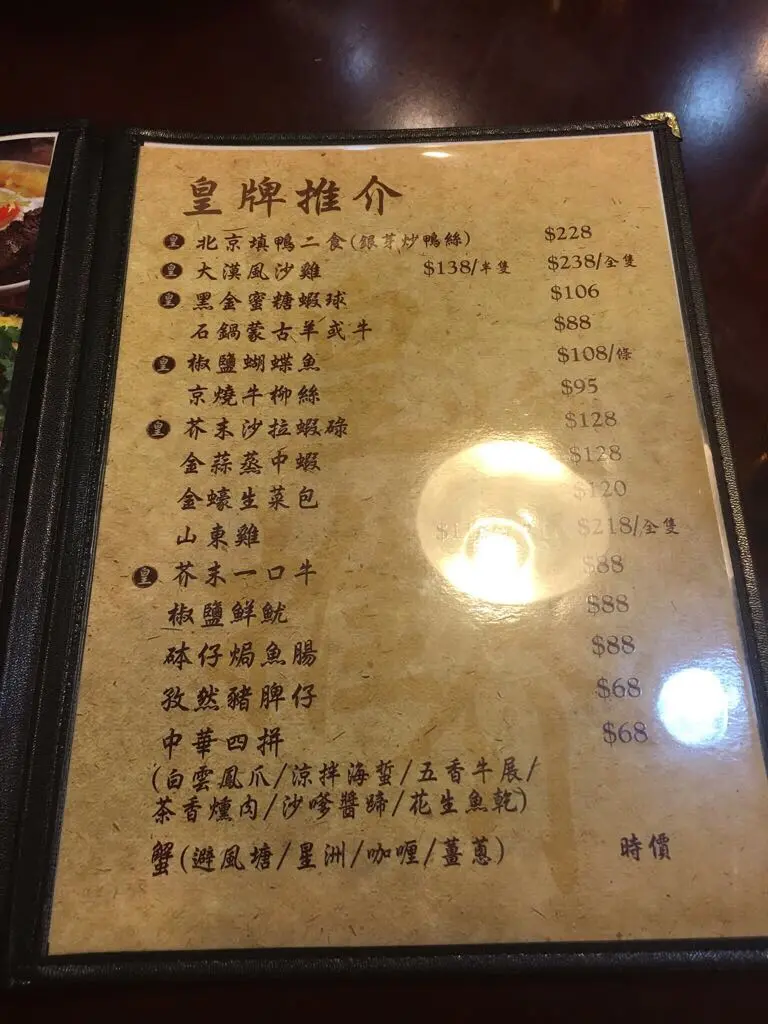 皇牌推介
皇 北京填鴨二食(銀芽炒鴨絲) $228
皇 大漠風沙雞 $138/半隻 $238/全隻
皇 黑金蜜糖蝦球 $106
石鍋蒙古羊或牛 $88
皇 椒鹽蝴蝶魚 $108/條
京燒牛柳絲 $95
皇 芥末沙拉蝦碌 $128
金蒜蒸中蝦 $128
金蠔生菜包 $120
山東雞 $218/全隻
皇 芥末一口牛 $88
椒鹽鮮魷 $88
砵仔焗魚腸 $88
孜然豬脾仔 $68
中華四拼 $68
(白雲鳳爪/涼拌海蜇/五香牛展/
茶香燻肉/沙嗲醬蹄/花生魚乾)
蟹(避風塘/星洲/咖喱/薑蔥) 時價